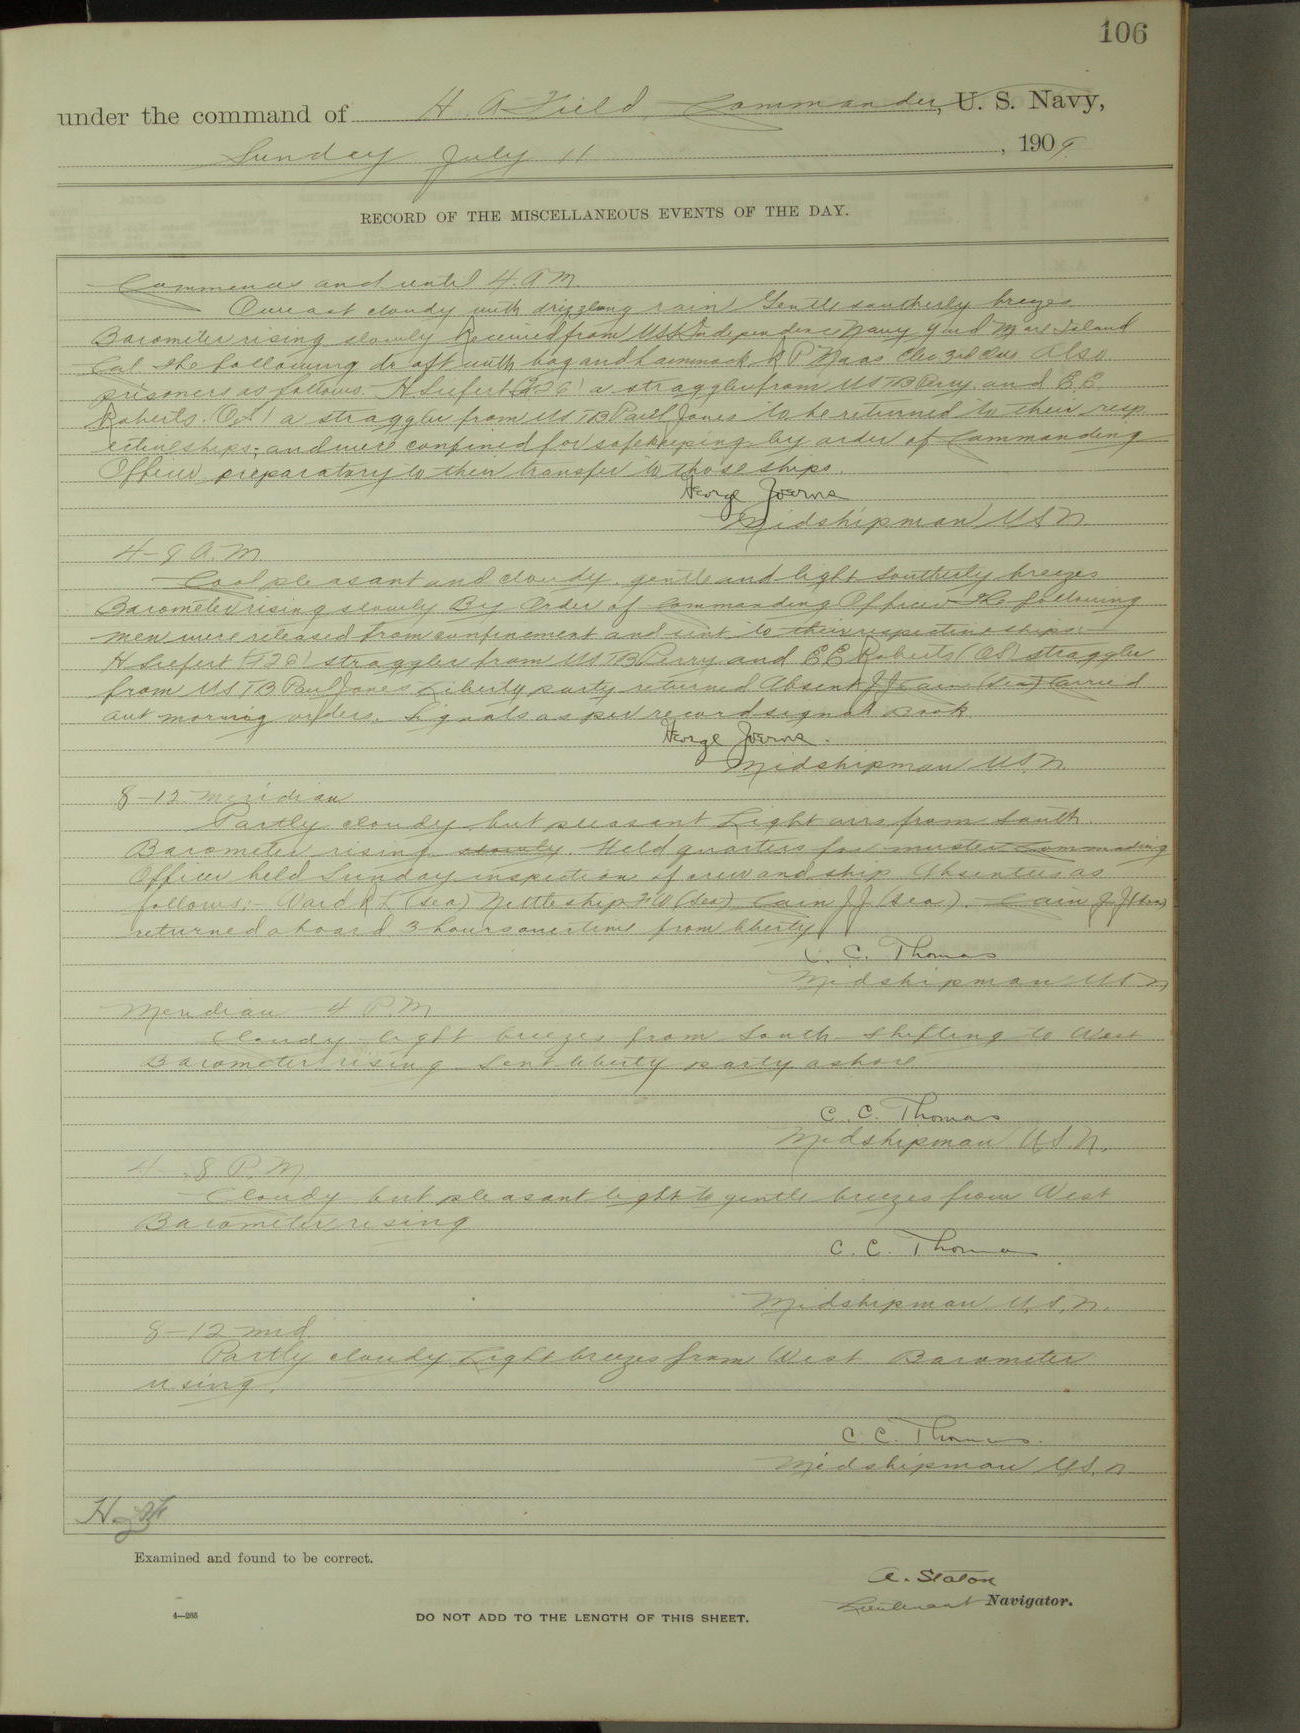 106
under the command of H. A. Field, Commander, U. S. Navy,
Sunday July 11, 1909
RECORD OF THE MISCELLANEOUS EVENTS OF THE DAY.
Commences and until 4 A M
Overcast cloudy with drizzling rain Gentle southerly breezes
Barometer rising slowly Received from USS Independence Navy Yard Mare Island
Cal. the following draft with bag and hammock R P Maas Elec 3rd Cls. Also
prisoners as follows H Siefert a straggler from US TB Perry and E E
Roberts (OS) a straggler from US TB Paul Jones to be returned to their resp
ective ships, and were confined for safekeeping by order of Commanding
Officer preparatory to their transfer to those ships.
George Joerns
Midshipman USN
4-8 A.M
Cool pleasant and cloudy gentle and light Southerly breezes
Barometer rising slowly By Order of Commanding Officer The following
men were released from confinement and sent to their respective ships:-
H Siefert straggler from US TB Perry and E E Roberts (OS) straggler
from US TB Paul Jones Liberty party returned Absent J J Cain (Sea) Carried
out morning orders. Signals as per record signal book
George Joerns.
Midshipman U.S.N.
8-12 meridian
Partly cloudy but pleasant Light airs from South
Barometer rising slowly. Held quarters for muster Commanding
Officer held Sunday inspection of crew and ship Absentees as
follows:- R L (Sea) Nettleship F W (Sea) Cain J J (Sea). Cain J J (Sea)
returned aboard 3 hours overtime from liberty
C. C. Thomas
Midshipman US N
Meridian 4 P.M
Cloudy light breezes from South shifting to West
Barometer rising Sent liberty party ashore
C. C. Thomas
Midshipman U.S.N.
4-8 P.M
Cloudy but pleasant light to gentle breezes from West
Barometer rising
C. C. Thomas
Midshipman U.S.N.
8-12 mid.
Partly cloudy Light breezes from West Barometer
rising.
C. C. Thomas.
Midshipman U.S.N
Examined and found to be correct.
A. Staton
Lieutenant Navigator.
4—265
DO NOT ADD TO THE LENGTH OF THIS SHEET.